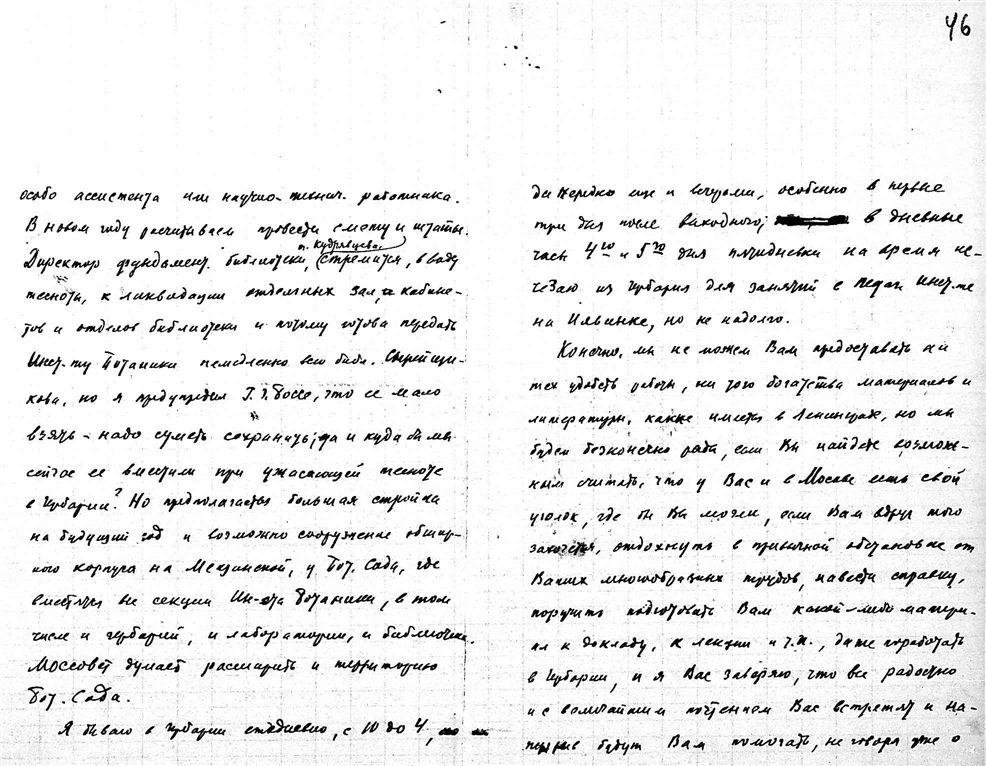 46
особо ассистента или научно-технич. работника.
В новом году расчитываем провести смету и штаты.
т. Кудрявцева
Директор фундамент. библиотеки, стремится, в виду
тесноты, к ликвидации отдельных зал, и кабине-
тов и отделов библиотеки и потому готова передать
Инст-ту Ботаники немедленно всю библ. Сырейщи-
кова, но я предупредил Г. Г. Боссе, что ее мало
взять - надо суметь сохранить; да и куда бы мы
сейчас ее вместили при ужасающей тесноте
в Гербарии? Но предполагается большая стройка
на будущий год и возможно сооружение обшир-
ного корпуса на Мещанской, у Бот. Сада, где
вместятся все секции Ин-та Ботаники, в том
числе и гербарий, и лаборатории, и библиотека.
Моссовет думает расширить и территорию
Бот. Сада.
Я бываю в Гербарии ежедневно, с 10 до 4,
да нередко еще и вечерами, особенно в первые
три дня после выходного; в дневные
часы 4го и 5го дня пятидневки на время ис-
чезаю из Гербария для занятий с Педаг. Инст-те
на Ильинке, но не надолго.
Конечно, мы не можем Вам предоставить ни
тех удобств работы, ни того богатства материалов и
литературы, какие имеются в Ленинграде, но мы
будем бесконечно рады, если Вы найдете возмож-
ным считать, что у Вас и в Москве есть свой
уголок, где бы Вы могли, если Вам вдруг того
захочется, отдохнуть в привычной обстановке от
Ваших многообразных трудов, навести справку,
поручить подготовить Вам какой-либо матери-
ал к докладу, к лекции и т.п., даже поработать
в Гербарии, и я Вас заверяю, что все радостно
и с величайшим почтением Вас встретят и на-
перерыв будут Вам помогать, не говоря уже о